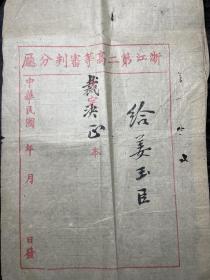 浙江第二高等審判分廳
給姜玉臣
裁決正本
中華民國 年 月 日發